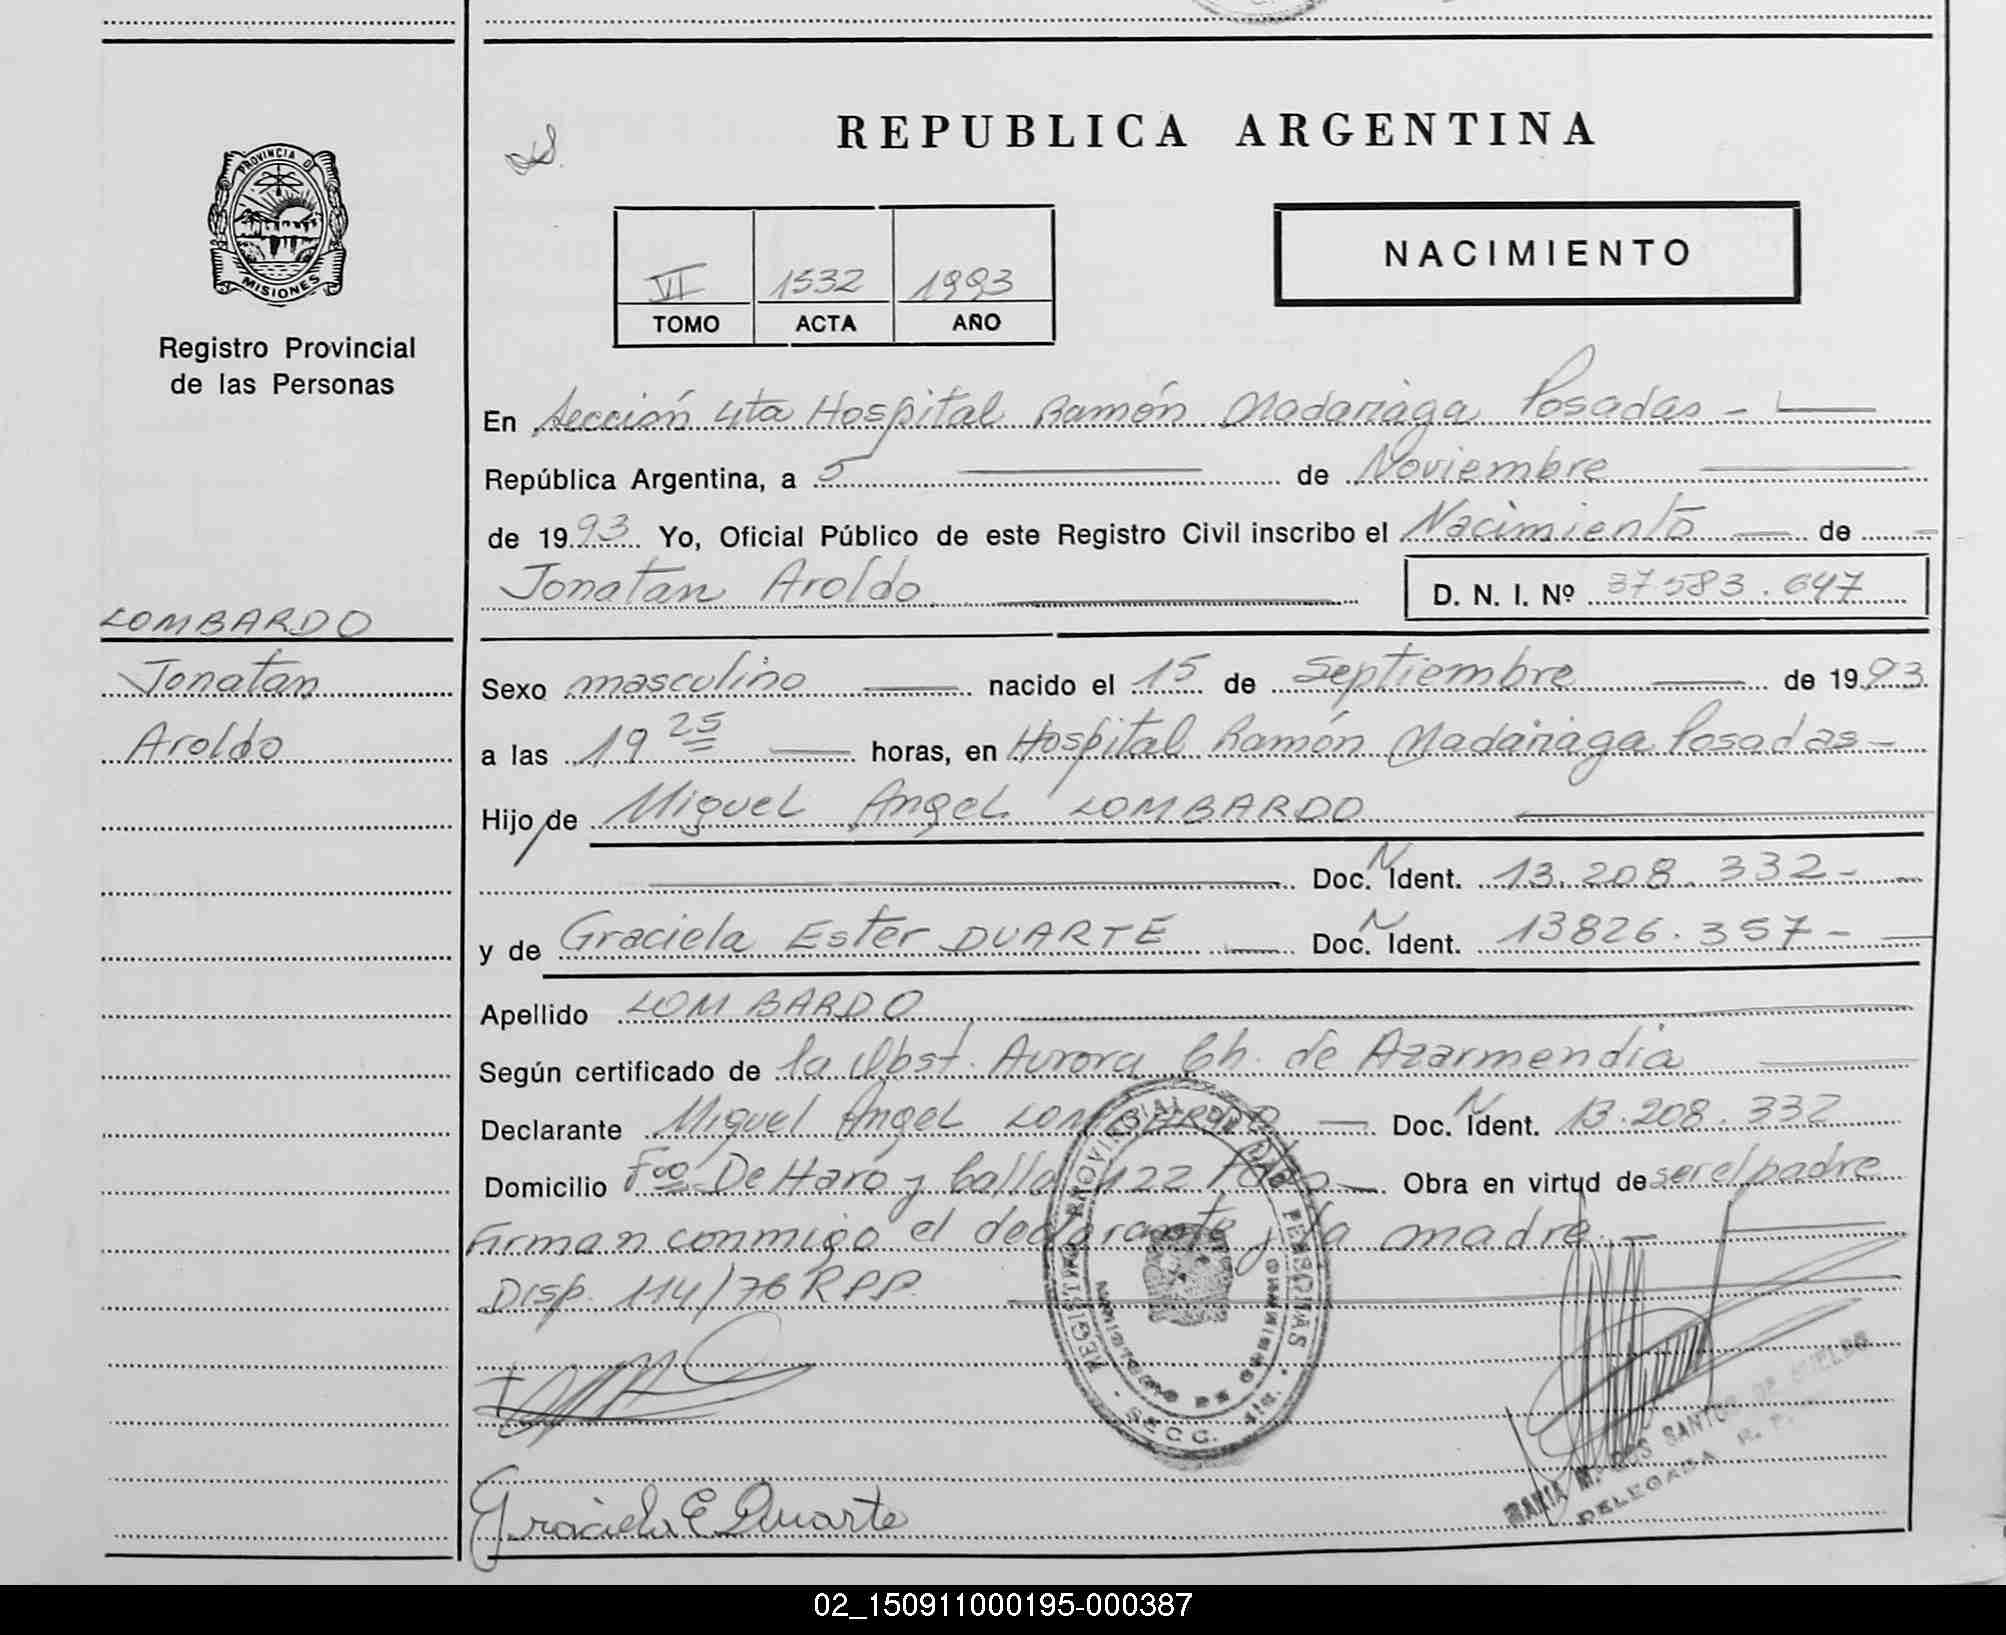 REPUBLICA ARGENTINA
PROVINCIA DE
MISIONES
Registro Provincial
de las Personas
NACIMIENTO
VI 1532 1993
TOMO ACTA AÑO
En Sección 4ta Hospital Ramón Madariaga Posadas -
República Argentina, a 5 de Noviembre
de 1993 Yo, Oficial Público de este Registro Civil inscribo el Nacimiento de
Jonatan Aroldo D. N. I. Nº 37583.647
LOMBARDO
Jonatan
Aroldo
Sexo masculino nacido el 15 de Septiembre de 1993
a las 19 25 horas, en Hospital Ramón Madariaga Posadas -
Hijo de Miguel Angel LOMBARDO
Doc. N Ident. 13.208.332 -
y de Graciela Ester DUARTE Doc. N Ident. 13826.357 -
Apellido LOMBARDO
Según certificado de la Obst. Aurora Ch. de Azarmendia
Declarante Miguel Angel LOMBARDO Doc. N Ident. 13.208.332
Domicilio Fco De Haro y Calle 122 Obra en virtud de ser el padre
Firman conmigo el declarante y la madre. -
Disp. 114/76 RPP.
REGISTRO PROVINCIAL DE LAS PERSONAS
MINISTERIO DE GOBIERNO
SECC. 4ta.
Graciela E Duarte
MARIA M. DOS SANTOS DE
DELEGADA R. P.
02_150911000195-000387